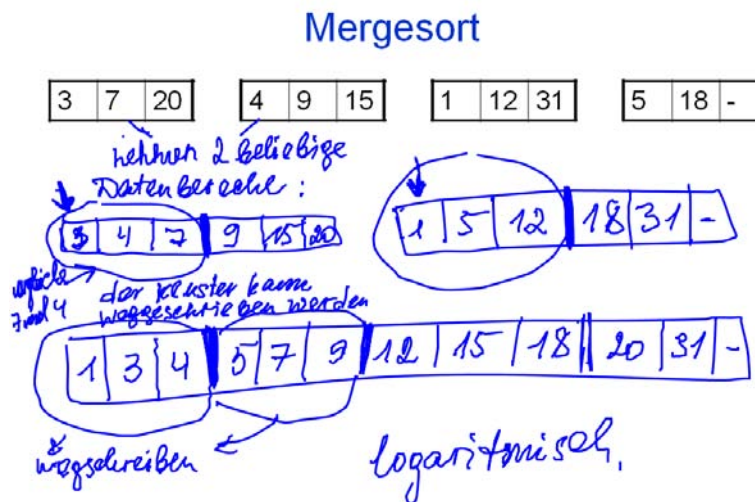 Mergesort
3 7 20 4 9 15 1 12 31 5 18 -
nehmen 2 beliebige
Datenbereiche:
3 4 7 9 15 20 1 5 12 18 31 -
7 und 4
der Kluster kann
weggeschrieben werden
1 3 4 5 7 9 12 15 18 20 31 -
wegschreiben
logaritmisch.